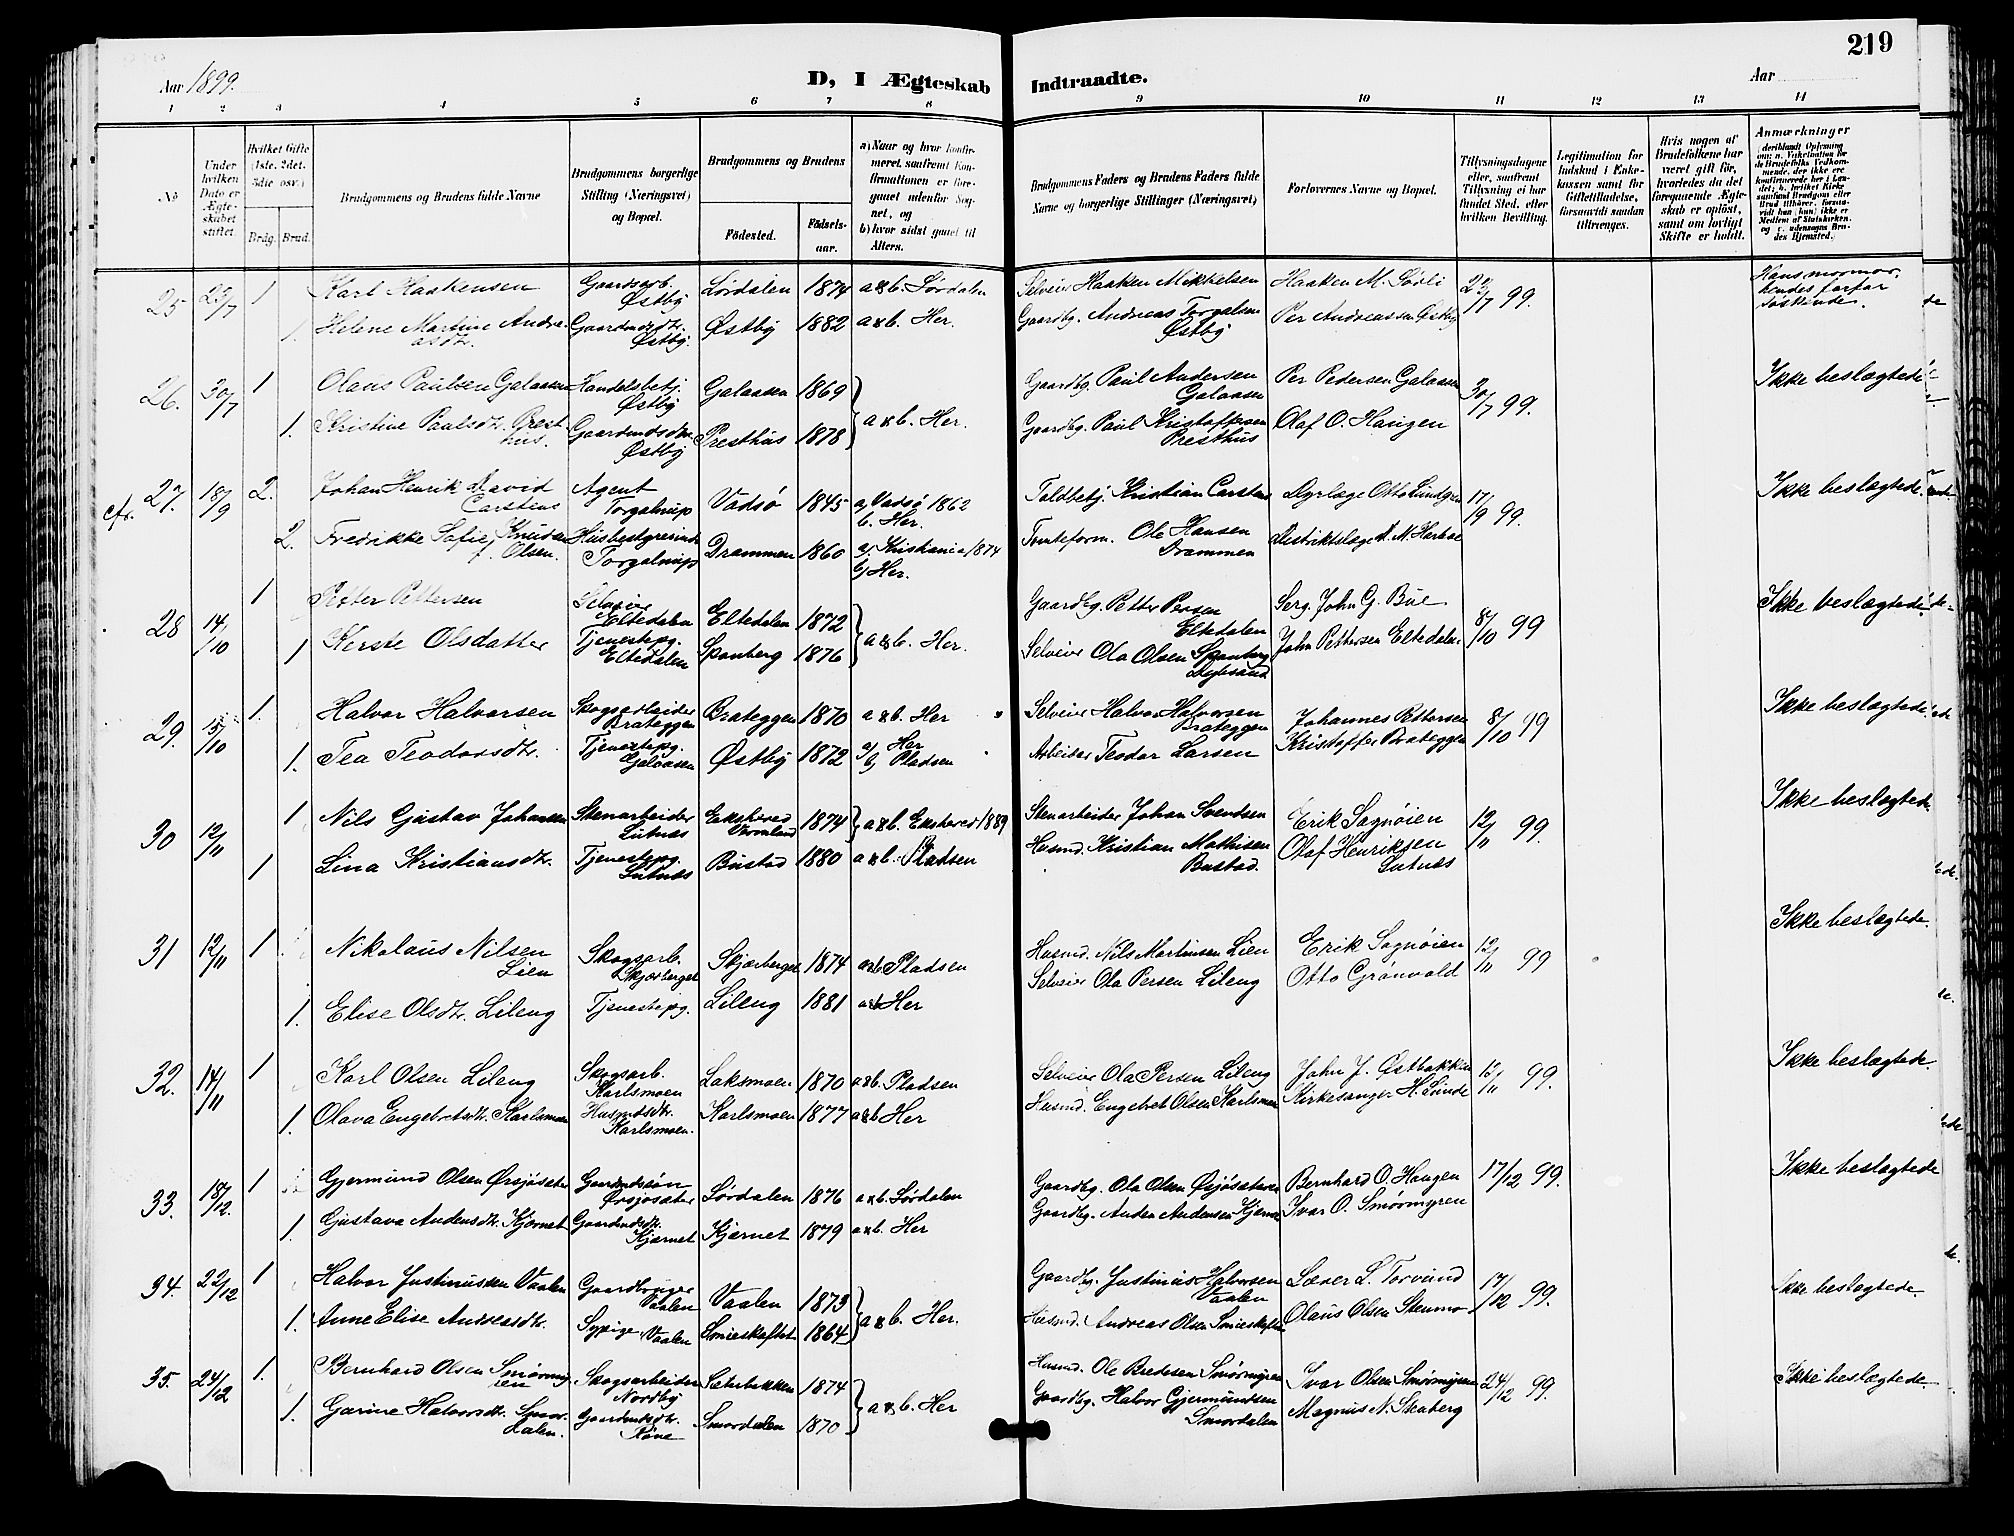 219
Aar 1899.
D, I Ægteskab Indtraadte.
Aar
1 2 3 4 5 6 7 8 9 10 11 12 13 14
No
Under hvilken Dato er Ægteskabet stiftet.
Hvilket Gifte (1ste, 2det, 3die osv.)
Brdg. Brud.
Brudgommens og Brudens fulde Navne
Brudgommens borgerlige Stilling (Næringsvei) og Bopæl.
Brudgommens og Brudens
Fødested.
Fødselsaar.
a) Naar og hvor konfirmeret, saafremt Konfirmationen er foregaaet udenfor Sognet, og
b) hvor sidst gaaet til Alters.
Brudgommens Faders og Brudens Faders fulde Navne og borgerlige Stillinger (Næringsvei)
Forlovernes Navne og Bopæl.
Tillysningsdagene eller, saafremt Tillysning ei har fundet Sted, efter hvilken Bevilling.
Legitimation for Indskud i Enkekassen samt for Giftetilladelse, forsaavidt saadan tiltrænges.
Hvis nogen af Brudefolkene har været gift før, hvorledes da det foregaaende Ægteskab er opløst, samt om lovligt Skifte er holdt.
Anmærkninger
25 23/7 1 Karl Haakensen Gaardsarb. Østby Lørdalen 1874 a&b. Sørdalen Selveier Haaken Mikkelsen Haaken M. Sørli 23/7 99. Hans mormor, hendes farfar søskende.
1. Helene Martine Andreasdtr. Gaardmdsdtr. Østby. Østby 1882 a&b. Her. Gaardbg. Andreas Torgalsen Østby Per Andreassen Østby
26. 30/7 1 Olaus Paulsen Galaasen Handelsbetj. Østby Galaasen 1869 a&b. Her. Gaardbg. Paul Andersen Galaasen Per Pedersen Galaasen 30/7 99. Ikke beslægtede
1. Kristine Paulsdtr. Presthus. Gaardmdsdtr. Østby Presthus 1878 Gaardbg. Paul Kristoffersen Presthus Olaf O. Haugen
cfr. 27. 18/9 2. Johan Henrik David Carstens Agent Torgalrup Vadsø 1845 a) Vadsø 1862 b. Her. Toldbetj. Kristian Carstens Dyrlæge Otto Lindgren 17/9 99. Ikke beslægtede.
2. Fredrikke Sofie Knudsen f. Olsen. Husbestyrerinde Torgalrup Drammen 1860 a). Kristiania 1874 b) Her. Tomteform. Ole Hansen Drammen Distriktslæge M. Herboe
28 14/10 1 Petter Pettersen Selveier Eltedalen Eltedalen 1872 a&b. Her. Gaardbg. Petter Persen Eltedalen Serg. John G. Bue 8/10 99 Ikke beslægtede
1 Kerste Olsdatter Tjenestepg. Eltedalen Spanberg 1876 Selveier Ola Olsen Spanberg John Pettersen Eltedalen
29. 15/10 1. Halvor Halvorsen Skogsarbeider Brateggen Brateggen 1870 a&b. Her Selveier Halvor Halvorsen Brateggen Johannes Pettersen 8/10 99 Ikke beslægtede
1. Tea Teodorsdtr. Tjenestepg. Galaasen Østby 1872 a) Her b) Pladsen Arbeider Teodor Larsen Kristoffer Brateggen
30 12/11 1 Nils Gustav Johansen Stenarbeider Lutnæs Ekshered Vermland 1874 a&b. Ekshered 1889 Stenarbeider Johan Svendsen Erik Sagnøien 12/11 99. Ikke beslægtede.
1 Lina Kristiansdtr. Tjenestepg. Lutnæs Bustad 1880 a&b. Pladsen Husmd. Kristian Mathisen Bustad. Olaf Henriksen Lutnæs
31 12/11 1 Nikolaus Nilsen Lien Skogsarb. Skjærberget Skjærberget 1874 a&b Pladsen Husmd. Nils Martinsen Lien Erik Sagnøien 12/11 99 Ikke beslægtede.
1. Elise Olsdtr. Lileng Tjenestepg. Lileng 1881 a&b Her Selveier Ola Persen Lileng Otto Grønvold
32. 14/11 1 Karl Olsen Lileng Skogsarb. Karlsmoen Laksmoen 1870 a&b. Pladsen Selveier Ola Persen Lileng John J. Østbakken 99. Ikke beslægtede.
1. Olava Engebretsdtr. Karlsmoen Husmdsdtr. Karlsmoen. Karlsmoen 1877 a&b Her Husmd. Engebret Olsen Karlsmoen Kirkesanger H. Lunde
33. 18/12. 1 Gjermund Olsen Ørsjøsæter Gaardmdssøn Ørsjøsæter Sørdalen 1876 a&b. Sørdalen Gaardbg. Ola Olsen Ørsjøsæteren Bernhard O. Haugen 17/12 99. Ikke beslægtede
1. Gustava Andersdtr. Kjærnet Gaardmdsdtr. Kjærnet Kjærnet 1879 a&b. Her Gaardbg. Anders Andersen Kjærnet Ivar O. Smørmyren
34. 22/12 1 Halvor Justinussen Vaalen Gaardbruger Vaalen Vaalen 1873 a&b. Her. Gaardbg. Justinus Halvorsen Vaalen Lærer L. Torvund 17/12 99. Ikke beslægtede.
1. Anne Elise Andreasdtr. Sypige Vaalen Smieskaftet 1864 Husmd. Andreas Olsen Smieskaftet Olaus Olsen Stenmo
35. 24/12 1. Bernhard Olsen Smørmyren Skogsarbeider Nordby Sæterbakken 1874 a&b. Her Husmd. Ole Bredesen Smørmyren Ivar Olsen Smørmyren 24/12 99. Ikke beslægtede.
1. Gurine Halvorsdtr. Smordalen. Gaardmdsdtr. Smordalen 1870 Gaardbg. Halvor Gjermundsen Smordalen Magnus N. Skaberg